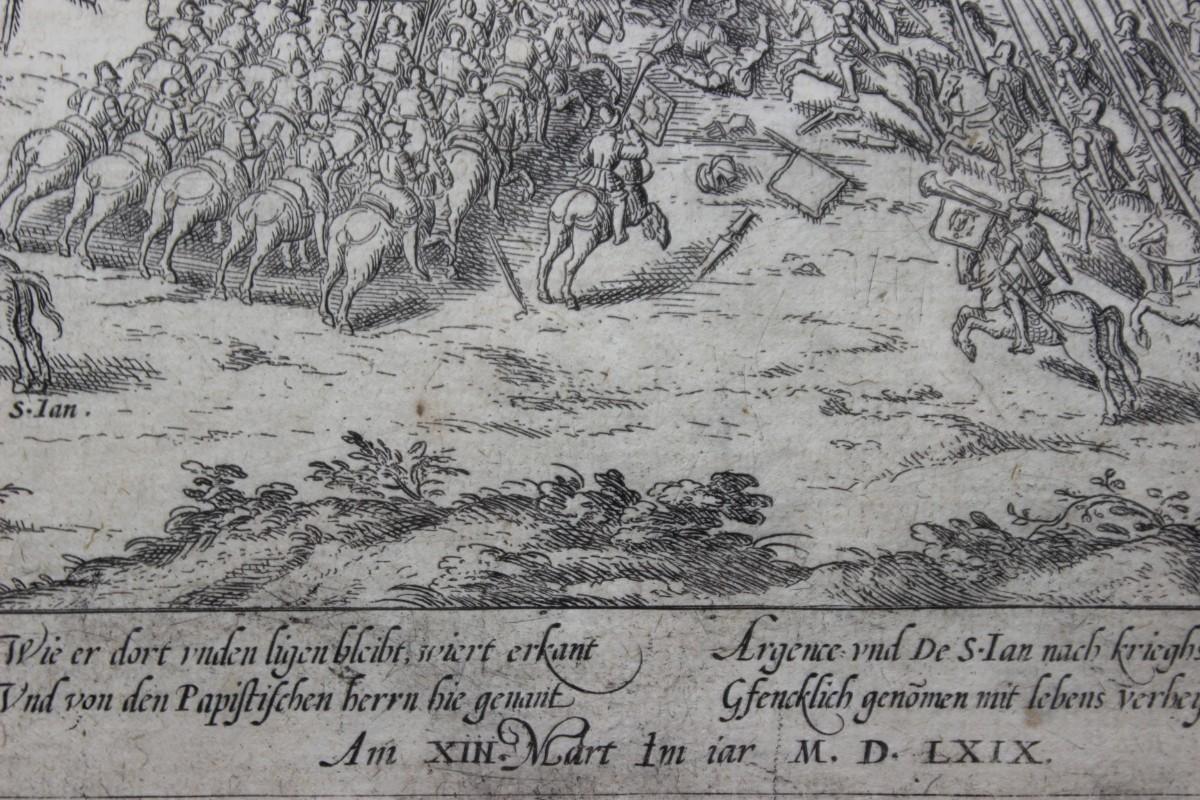 S. Ian.
Wie er dort vnden ligen bleibt, wiert erkant
Vnd von den Papistischen herrn hie genant
Argence vnd De S. Ian nach krieghs
Gfencklich genom̄en mit lebens verhei
Am XIII. Mart Im iar M. D. LXIX.